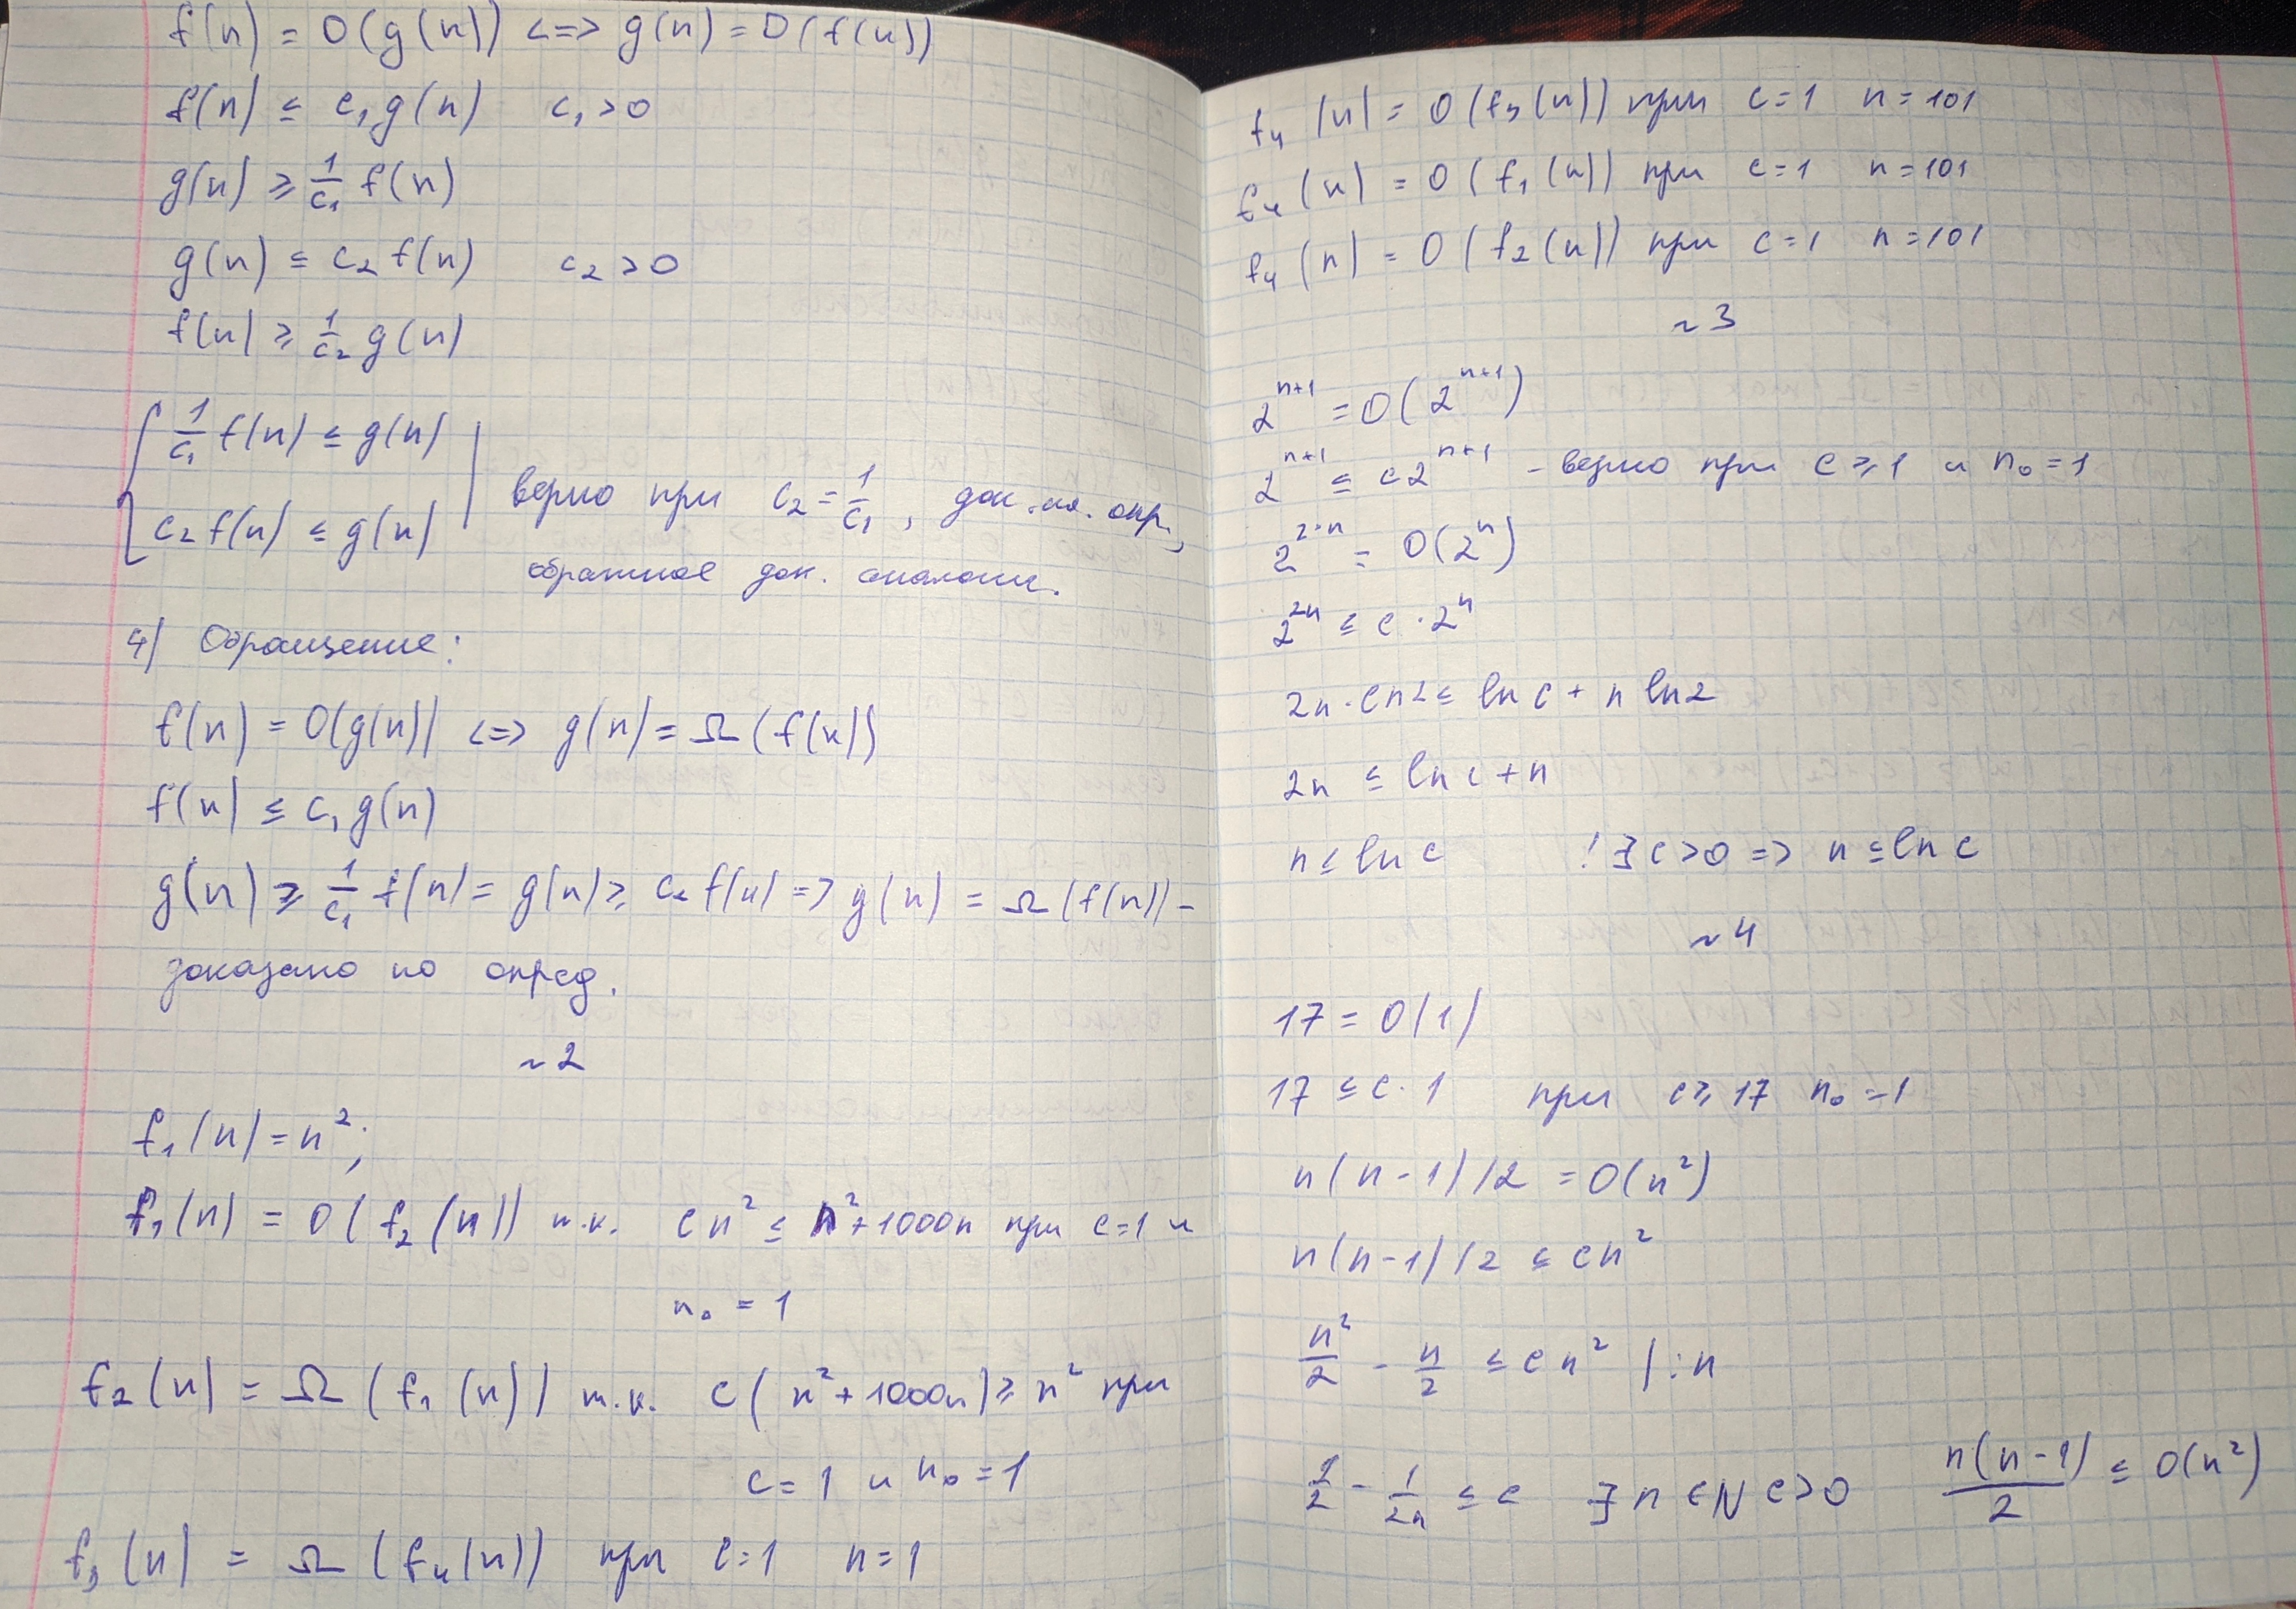 f(n) = O(g(n)) <=> g(n) = O(f(n))
f(n) ≤ c₁g(n) c₁>0
g(n) ≥ 1/c₁ f(n)
g(n) ≤ c₂ f(n) c₂>0
f(n) ≥ 1/c₂ g(n)
{ 1/c₁ f(n) ≤ g(n)
c₂ f(n) ≤ g(n) | верно при c₂ = 1/c₁, док. по. опр,
обратное док. аналогич.
4) Обращение:
f(n) = O(g(n)) <=> g(n) = Ω(f(n))
f(n) ≤ c₁g(n)
g(n) ≥ 1/c₁ f(n) = g(n) ≥ c₂ f(n) => g(n) = Ω(f(n)) -
доказано по опред.
~2
f₁(n) = n²;
f₁(n) = O(f₂(n)) т.к. cn² ≤ n²+1000n при c=1 и
n₀ = 1
f₂(n) = Ω(f₁(n)) т.к. c(n²+1000n) ≥ n² при
c = 1 и n₀ = 1
f₃(n) = Ω(f₄(n)) при c=1 n=1
f₄(n) = O(f₃(n)) при c=1 n=101
f₄(n) = O(f₁(n)) при c=1 n=101
f₄(n) = O(f₂(n)) при c=1 n=101
~3
2ⁿ⁺¹ = O(2ⁿ⁺¹)
2ⁿ⁺¹ ≤ c2ⁿ⁺¹ - верно при c ≥ 1 и n₀ = 1
2^(2·n) = O(2ⁿ)
2²ⁿ ≤ c · 2ⁿ
2n · ln2 ≤ ln c + n ln2
2n ≤ ln c + n
n ≤ ln c !∃ c>0 => n ≤ ln c
~4
17 = O(1)
17 ≤ c · 1 при c ≥ 17 n₀ = 1
n(n-1)/2 = O(n²)
n(n-1)/2 ≤ cn²
n²/2 - n/2 ≤ cn² | :n
1/2 - 1/2n ≤ c ∃ n ∈ N c>0 n(n-1)/2 ≤ O(n²)